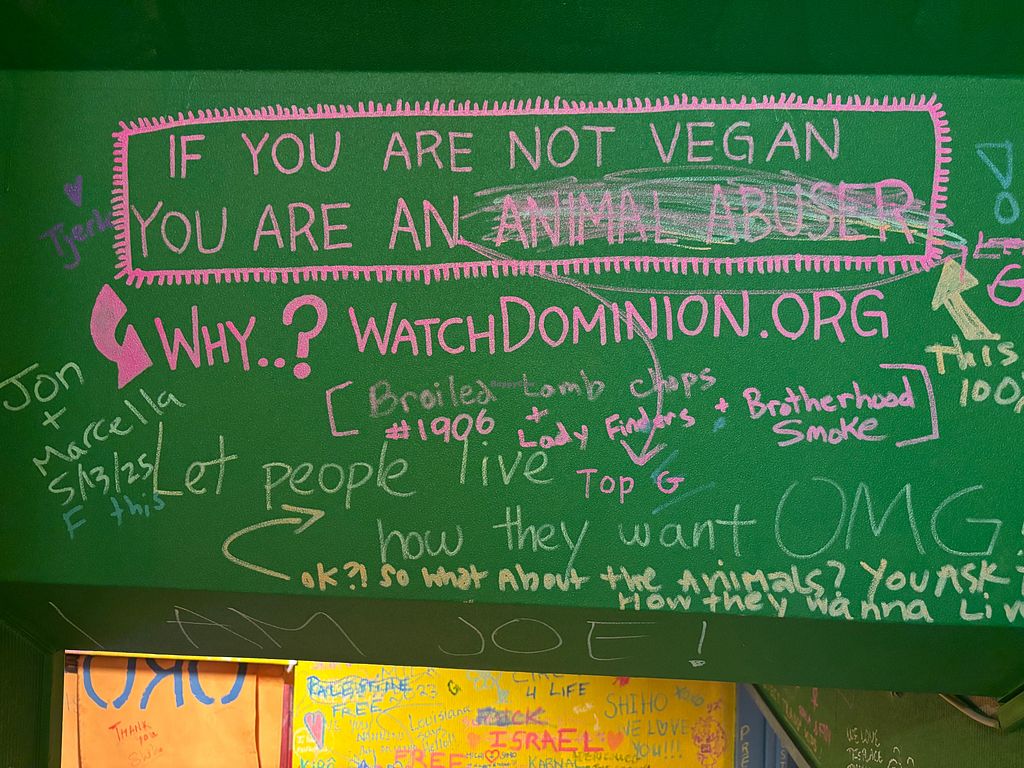 IF YOU ARE NOT VEGAN
YOU ARE AN ANIMAL ABUSER
Tjerk
WHY..? WATCHDOMINION.ORG
This
Jon
+
Marcella
5/13/25
F this
[Broiled Lamb chops
#1906 + Lady Finders + Brotherhood
Smoke]
Let people live
Top G
how they want OMG
OK?! So What About the Animals? You Ask
How they Wanna Liv
I AM JOE!
ORO
THANK
you
PALESTINE
FREE
4 LIFE
SHIHO
WE LOVE
YOU!!!
Louisiana
says
ISRAEL
FREE
WE LOVE